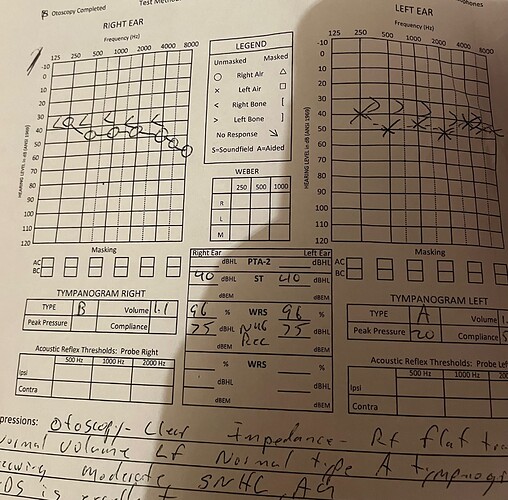 Otoscopy Completed
Test Method
phones
RIGHT EAR
LEFT EAR
Frequency (Hz)
Frequency (Hz)
125 250 500 1000 2000 4000 8000
125 250 500 1000 2000 4000 8000
-10
0
10
20
30
40
50
60
70
80
90
100
110
120
HEARING LEVEL in dB (ANSI 1969)
LEGEND
Unmasked Masked
Right Air
Left Air
< Right Bone [
> Left Bone ]
No Response
S=Soundfield A=Aided
WEBER
250 500 1000
R
L
M
-10
0
10
20
30
40
50
60
70
80
90
100
110
120
HEARING LEVEL in dB (ANSI 1969)
Masking
AC
BC
Masking
AC
BC
Right Ear Left Ear
dBHL PTA-2 dBHL
40 dBHL ST 40 dBHL
dBEM dBEM
96 % WRS 96 %
75 dBHL NU6 75 dBHL
dBEM Rec dBEM
% WRS %
dBHL dBHL
dBEM dBEM
TYMPANOGRAM RIGHT
TYPE B Volume 1.1
Peak Pressure Compliance
TYMPANOGRAM LEFT
TYPE A Volume
Peak Pressure 20 Compliance
Acoustic Reflex Thresholds: Probe Right
500 Hz 1000 Hz 2000 Hz
Ipsi
Contra
Acoustic Reflex Thresholds: Probe Le
500 Hz 1000 Hz
Ipsi
Contra
pressions: Otoscopy - Clear Impedance - Rt flat
normal volume Lt Normal type A
moderate SNHL AU
is